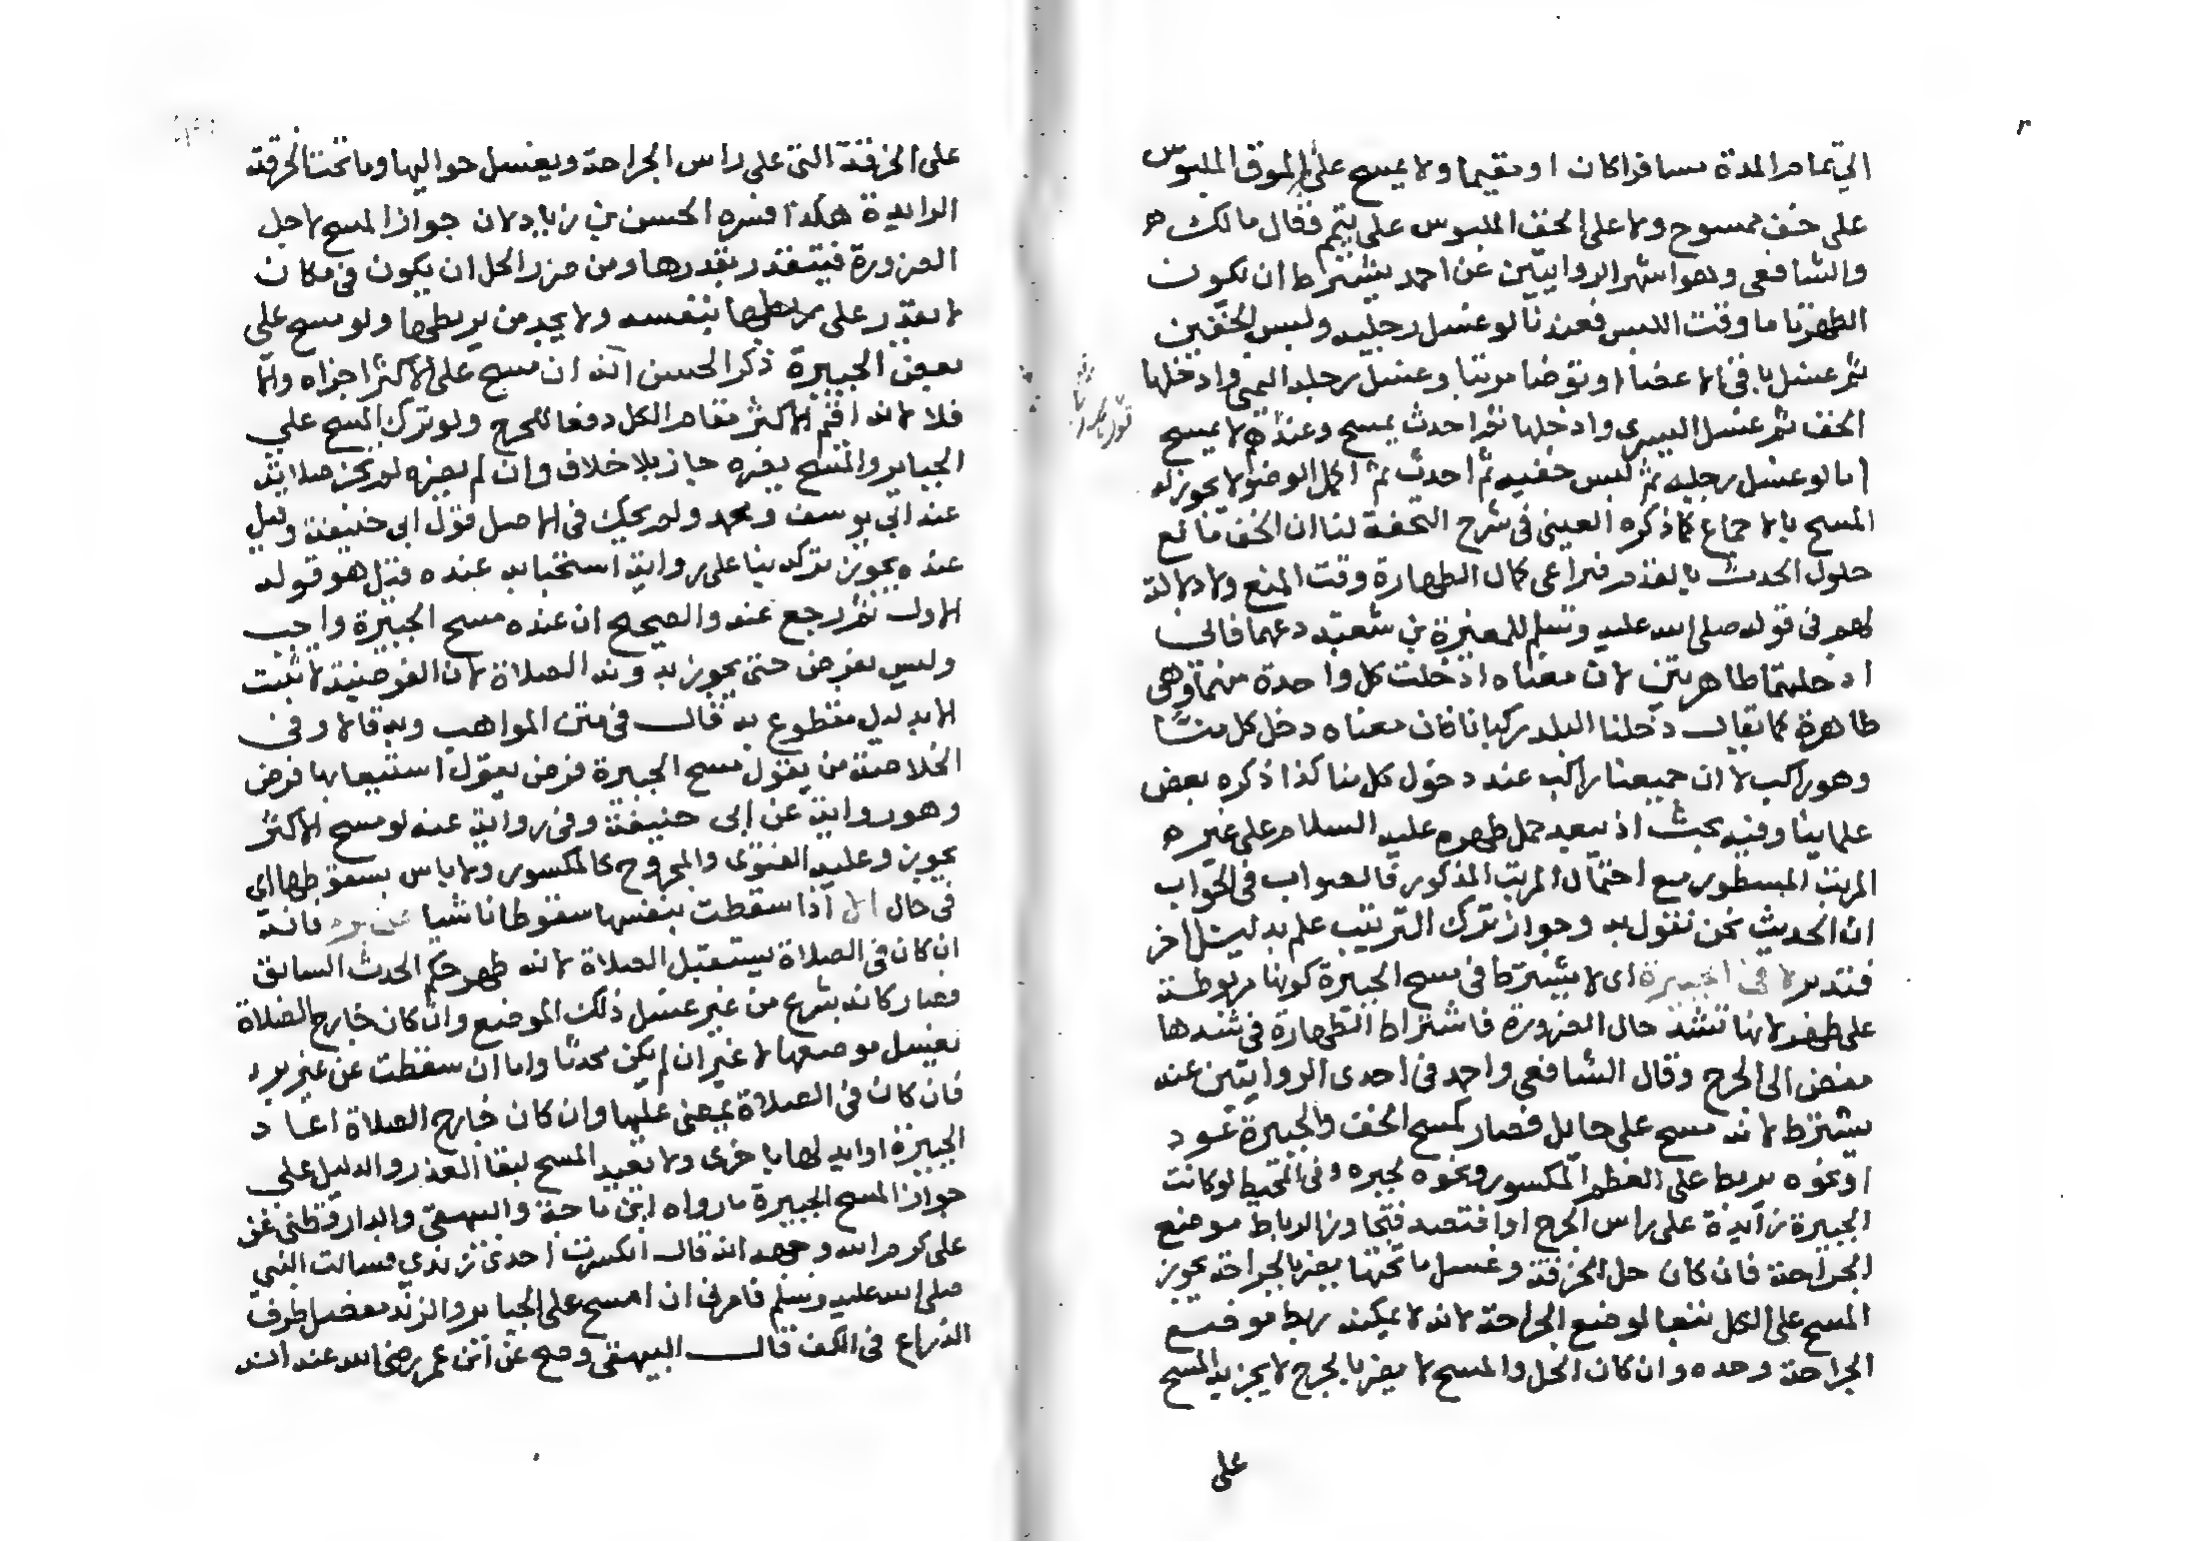 الى تمام المدة مسافرا كان او مقيما ولا يمسح على الموق الملبوس
على خف ممسوح ولا على الخف الملبوس على تيمم فقال مالك
والشافعي وهو اشهر الروايتين عن احمد يشترط ان تكون
الطهر تاما وقت اللبس فعندنا لو غسل رجليه ولبس الخفين
ثم غسل باقي الاعضا او توضا مرتبا وغسل رجله اليمنى وادخلها
الخف ثم غسل اليسرى وادخلها ثم احدث يمسح وعندهم لا يمسح
اما لو غسل رجليه ثم لبس خفيه ثم احدث ثم اكمل الوضوء لا يجوز له
المسح بالاجماع كما ذكره العيني في شرح التحفة لنا ان الخف مانع
حلول الحدث بالقدم فيراعى كمال الطهارة وقت المنع ولا دلالة
لهم في قوله صلى الله عليه وسلم للمغيرة بن شعبة دعهما فاني
ادخلتهما طاهرتين لان معناه ادخلت كل واحدة منهما وهي
طاهرة كما يقال دخلنا البلد ركبانا فان معناه دخل كل منا
وهو راكب لا ان جميعنا راكب عند دخول كل منا كذا ذكره بعض
علماينا وفيه بحث اذ يبعد حمل طهره عليه السلام على غيره
المرتب المسطور مع احتمال المرتب المذكور فالصواب في الجواب
ان الحديث نحن نقول به وجواز ترك الترتيب علم بدليل اخر
فتدبر لا في الجبيرة اى لا يشترط في مسح الجبيرة كونها مربوطة
على طهر لانها تشد حال الضرورة فاشتراط الطهارة في شدها
مفض الى الحرج وقال الشافعي واحمد في احدى الروايتين عنه
يشترط لانه مسح على حايل فصار كمسح الخف والجبيرة عود
او نحوه يربط على العظم المكسور ونحوه لجبره وفي المحيط لو كانت
الجبيرة زايدة على راس الجرح او افتصد فتجاوز الرباط موضع
الجراحة فان كان حل الخرقة وغسل ما تحتها يضر بالجراحة يجوز
المسح على الكل تبعا لموضع الجراحة لانه لا يمكنه ربط موضع
الجراحة وحده وان كان الحل والمسح لا يضر بالجرح لا يجزيه المسح
على
على الخرقة التى على راس الجراحة ويغسل حواليها وما تحت الخرقة
الزايدة هكذا فسره الحسن بن زياد لان جواز المسح لاجل
الضرورة فيتقدر بقدرها ومن ضرر الحل ان يكون في مكان
لا يقدر على ربطها بنفسه ولا يجد من يربطها ولو مسح على
بعض الجبيرة ذكر الحسن انه ان مسح على الاكثر اجزاه والا
فلا لانه اقيم الاكثر مقام الكل دفعا للحرج ولو ترك المسح على
الجباير والمسح يضره جاز بلا خلاف وان لم يضره لم يجز صلاته
عند ابي يوسف ومحمد ولم يحك في الاصل قول ابى حنيفة وقيل
عنده يجوز تركه بنا على رواية استحبابه عنده قيل هو قوله
الاول ثم رجع عنه والصحيح ان عنده مسح الجبيرة واجب
وليس بفرض حتى يجوز بدونه الصلاة لان الفرضية لا تثبت
الا بدليل مقطوع به قال في متن المواهب وبه قالا وفى
الخلاصة من يقول مسح الجبيرة فرض يقول استيعابها فرض
وهو رواية عن ابى حنيفة وفى رواية عنه لو مسح الاكثر
يجوز وعليه الفتوى والمجروح كالمكسور ولا باس بسقوطها اي
في حال الا اذا سقطت بنفسها سقوطا ناشيا عن برء فانه
ان كان فى الصلاة يستقبل الصلاة لانه ظهر حكم الحدث السابق
فصار كانه شرع من غير غسل ذلك الموضع وان كان خارج الصلاة
يغسل موضعها لا غير ان لم يكن محدثا واما ان سقطت عن غير برء
فان كان في الصلاة يمضي عليها وان كان خارج الصلاة اعاد
الجبيرة او ابدلها باخرى ولا يعيد المسح لبقا العذر والدليل على
جواز المسح الجبيرة ما رواه ابن ماجة والبيهقى والدارقطنى عن
على كرم الله وجهه انه قال انكسرت احدى زندي فسالت النبي
صلى الله عليه وسلم فامرنى ان امسح على الجباير والزند مفصل طرف
الذراع فى الكف قال البيهقى وصح عن ابن عمر رضى الله عنه انه